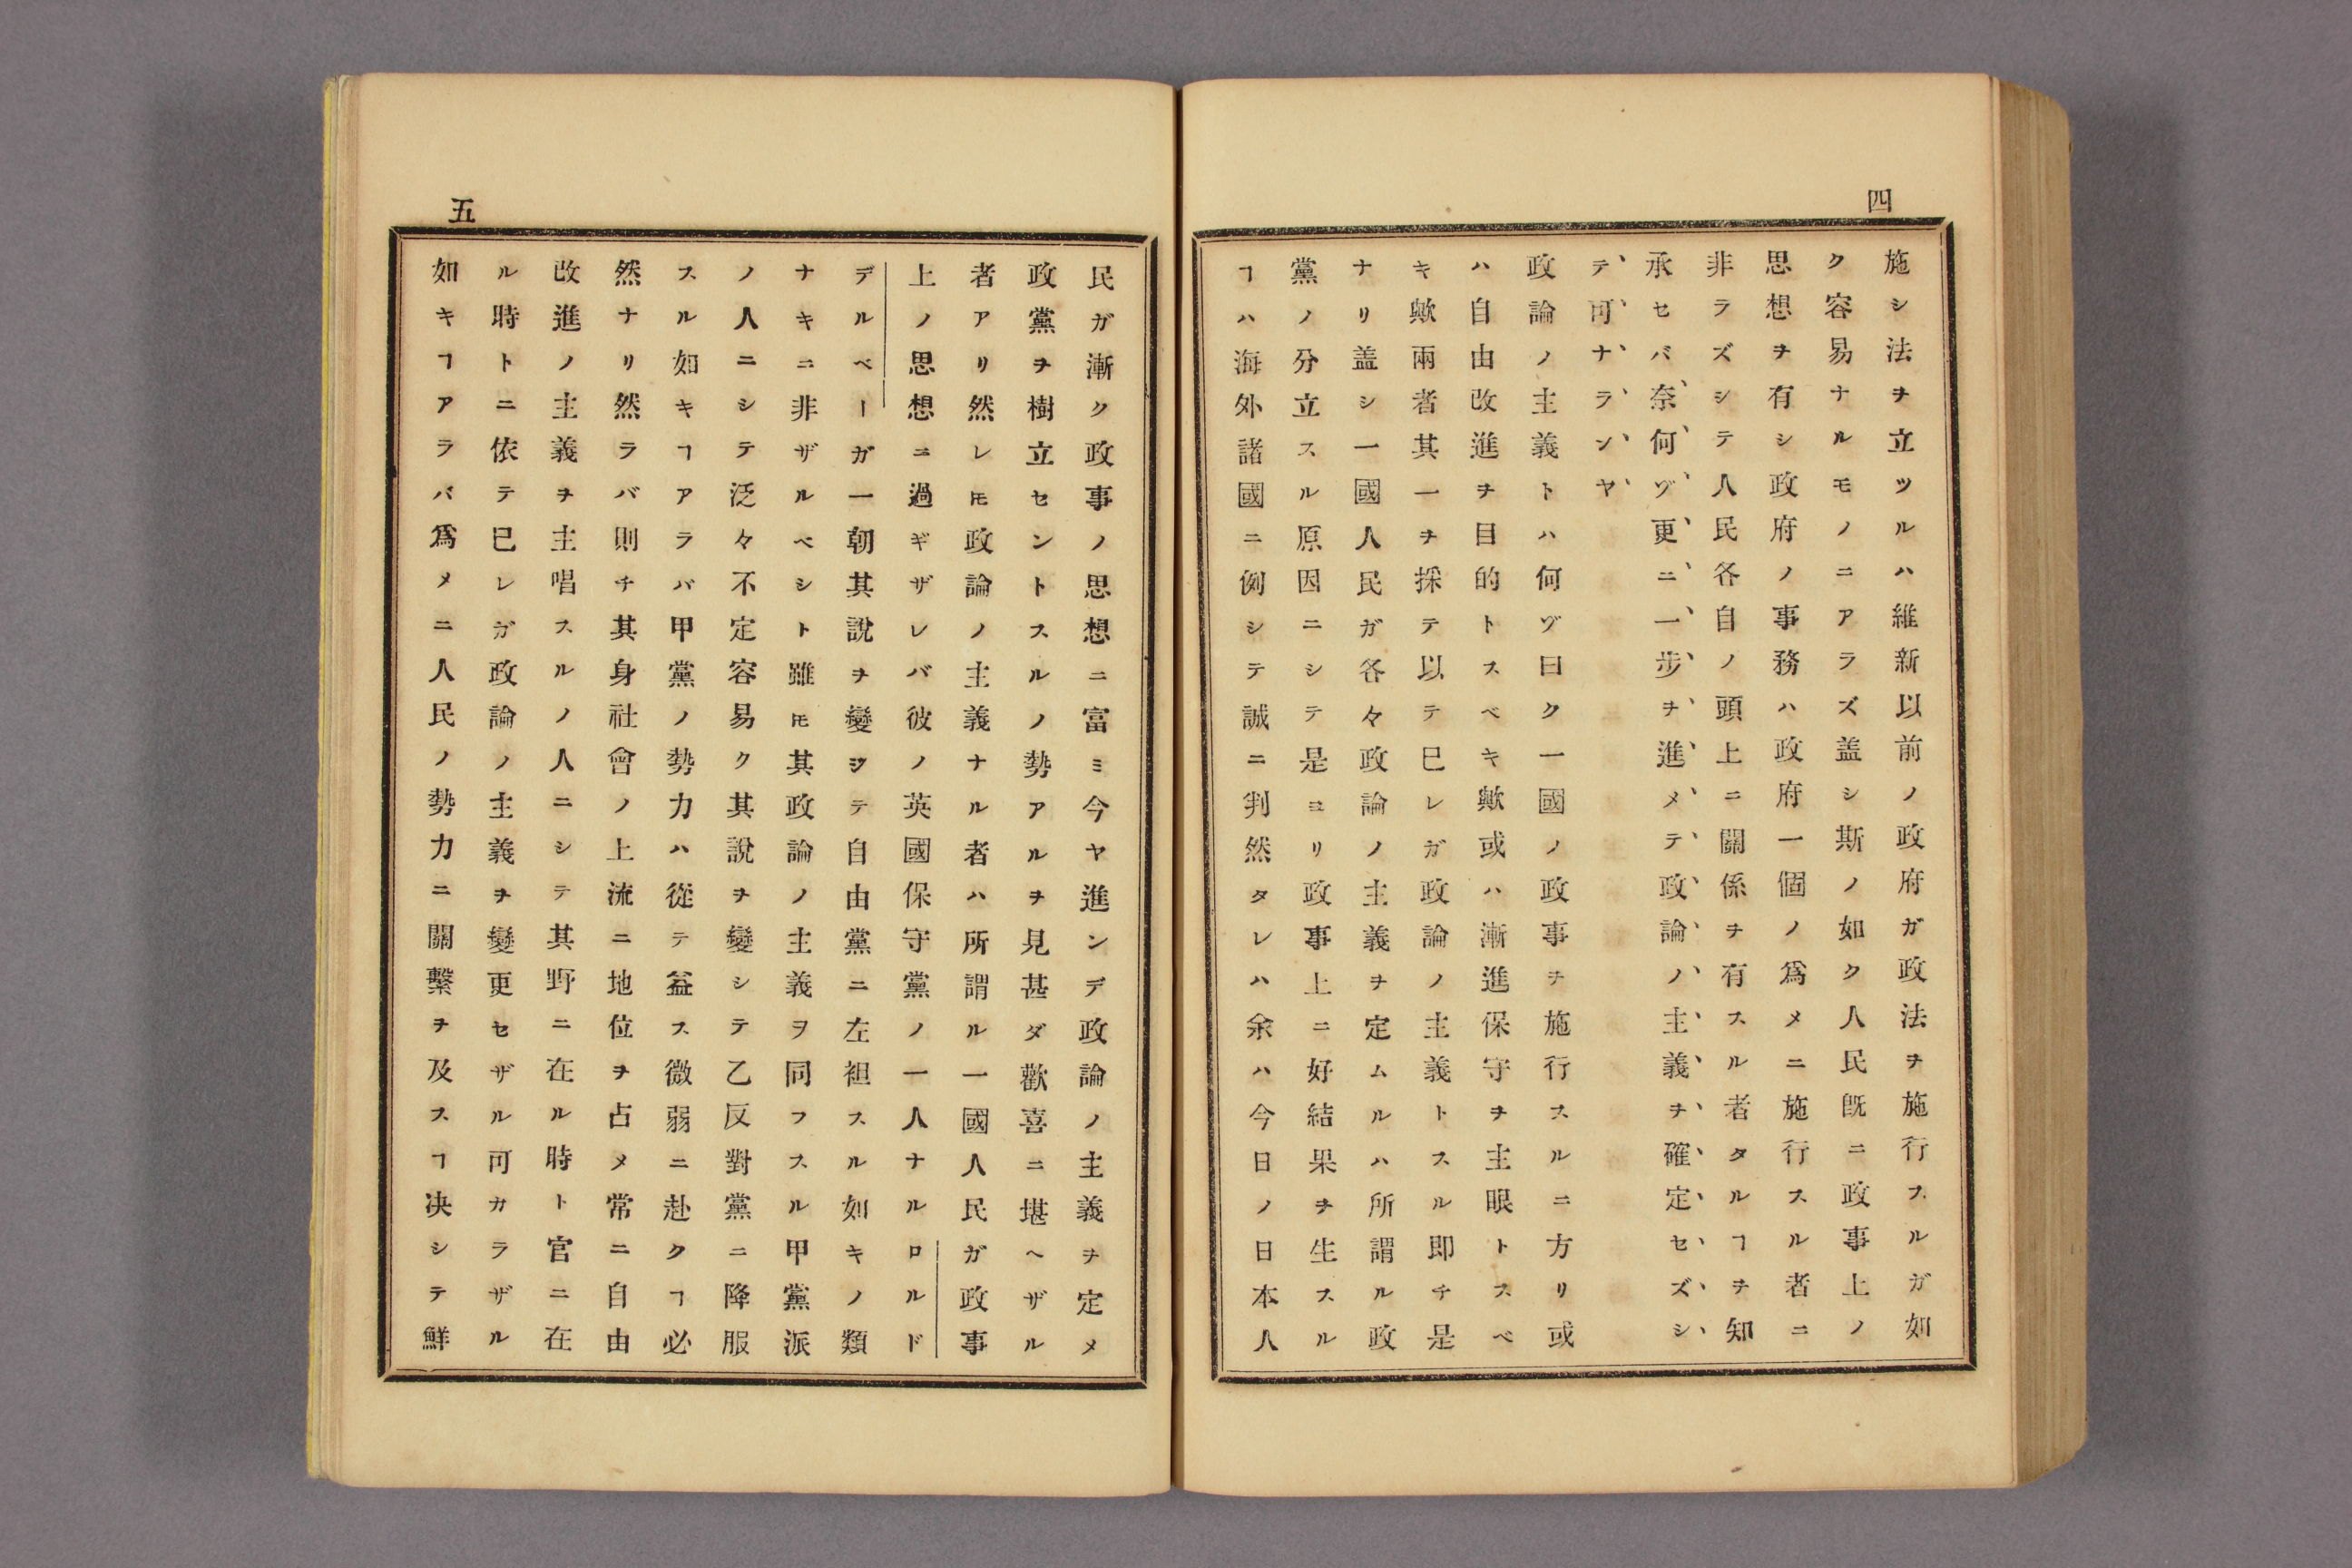 四
施シ法ヲ立ツルハ維新以前ノ政府ガ政法ヲ施行スルガ如
ク容易ナルモノニアラズ盖シ斯ノ如ク人民既ニ政事上ノ
思想ヲ有シ政府ノ事務ハ政府一個ノ爲メニ施行スル者ニ
非ラズシテ人民各自ノ頭上ニ關係ヲ有スル者タルヿヲ知
承セバ奈何ゾ更ニ一步ヲ進メテ政論ノ主義ヲ確定セズシ
テ可ナランヤ
政論ノ主義トハ何ゾ曰ク一國ノ政事ヲ施行スルニ方リ或
ハ自由改進ヲ目的トスベキ歟或ハ漸進保守ヲ主眼トスベ
キ歟兩者其一ヲ採テ以テ已レガ政論ノ主義トスル即チ是
ナリ盖シ一國人民ガ各々政論ノ主義ヲ定ムルハ所謂ル政
黨ノ分立スル原因ニシテ是ヨリ政事上ニ好結果ヲ生スル
ヿハ海外諸國ニ例シテ誠ニ判然タレハ余ハ今日ノ日本人
五
民ガ漸ク政事ノ思想ニ富ミ今ヤ進ンデ政論ノ主義ヲ定メ
政黨ヲ樹立セントスルノ勢アルヲ見甚ダ歡喜ニ堪ヘザル
者アリ然レ𪜈政論ノ主義ナル者ハ所謂ル一國人民ガ政事
上ノ思想ニ過ギザレバ彼ノ英國保守黨ノ一人ナルロルド
デルベーガ一朝其說ヲ變ジテ自由黨ニ左袒スル如キノ類
ナキニ非ザルベシト雖𪜈其政論ノ主義ヲ同フスル甲黨派
ノ人ニシテ泛々不定容易ク其說ヲ變シテ乙反對黨ニ降服
スル如キヿアラバ甲黨ノ勢力ハ從テ益ス微弱ニ赴クヿ必
然ナリ然ラバ則チ其身社會ノ上流ニ地位ヲ占メ常ニ自由
改進ノ主義ヲ主唱スルノ人ニシテ其野ニ在ル時ト官ニ在
ル時トニ依テ已レガ政論ノ主義ヲ變更セザル可カラザル
如キヿアラバ爲メニ人民ノ勢力ニ關繫ヲ及スヿ决シテ鮮